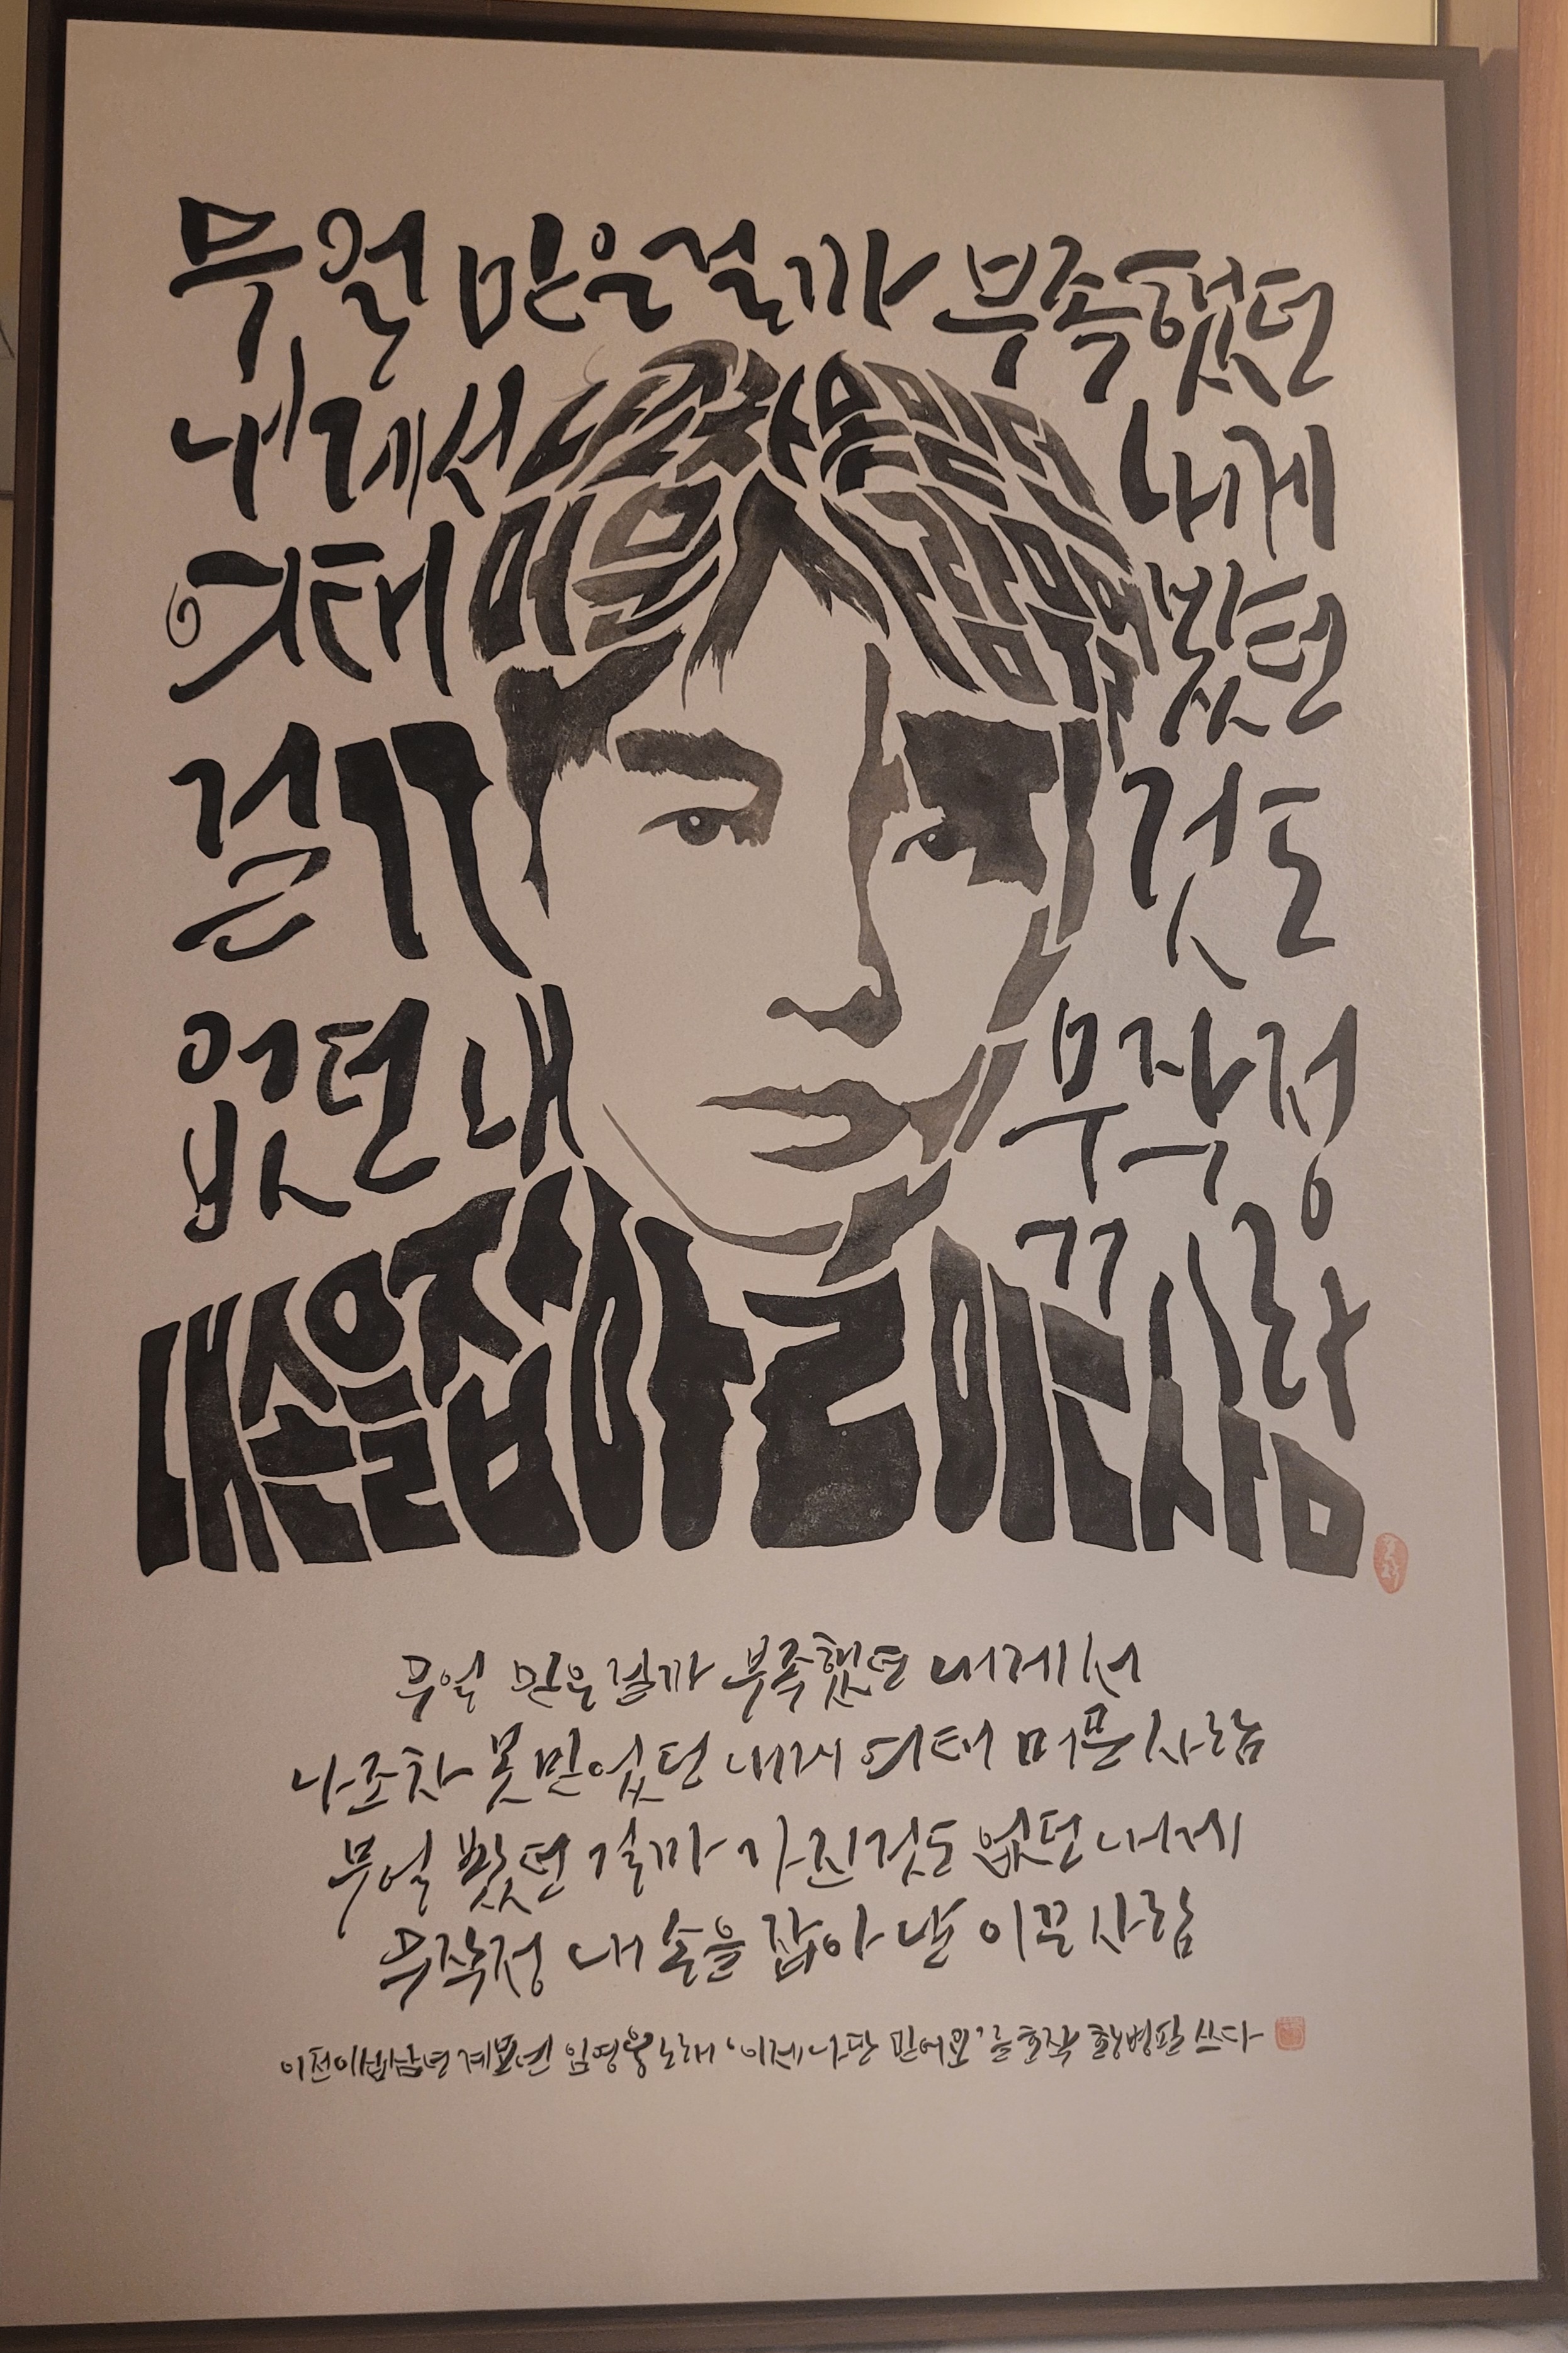 무얼 믿은걸까 부족했던
내게서 나조차 못믿던 내게
여태 머문 사람 무얼 봤던
걸까 가진 것도
없던 내게 무작정
내손을 잡아 날 이끈 사람
무얼 믿은걸까 부족했던 내게서
나조차 못믿었던 내게 여태 머문사람
무얼 봤던 걸까 가진것도 없던 내게
무작정 내손을 잡아 날 이끈사람
이천이십삼년 계묘년 임영웅노래 '이제나만 믿어요'를 호작 황병필 쓰다